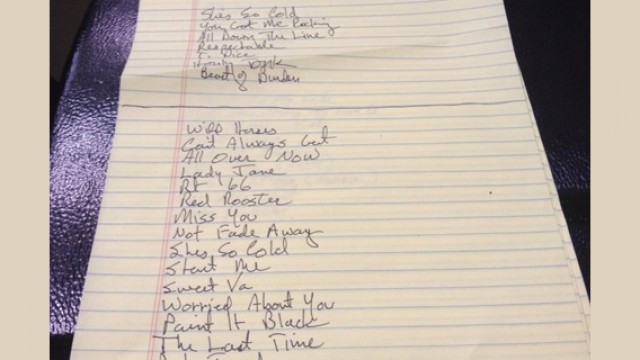 She's So Cold
You Got Me Rocking
All Down The Line
Respectable
T. Dice
Honky Tonk
Beast of Burden
Wild Horses
Cant Always Get
All Over Now
Lady Jane
Rt 66
Red Rooster
Miss You
Not Fade Away
Shes So Cold
Start Me
Sweet Va
Worried About You
Paint It Black
The Last Time